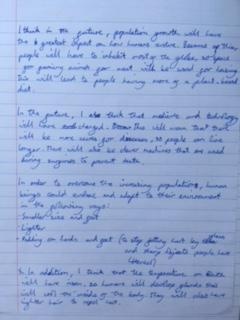 I think in the future, population growth will have
the greatest impact on how humans evolve. Because of this
people will have to inhabit most of the globe, so space
for farming animals for meat will be used for housing
this will lead to people having more of a plant-based
diet.
In the future, I also think that medicine and technology
will have changed. This will mean that there
will be more cures for diseases, so people can live
longer. There will also be clever machines that are used
during surgeries to prevent death.
In order to overcome the increasing populations, human
beings could evolve and adapt to their environment
in the following ways:
- Smaller size and feet
- Lighter
- Padding on hands and feet (to stop getting hurt by glass
and sharp objects people have
littered)
In addition, I think that the temperature on Earth
will have risen, so humans will develop glands that
will cool the insides of the body. They will also have
lighter hair to repel heat.